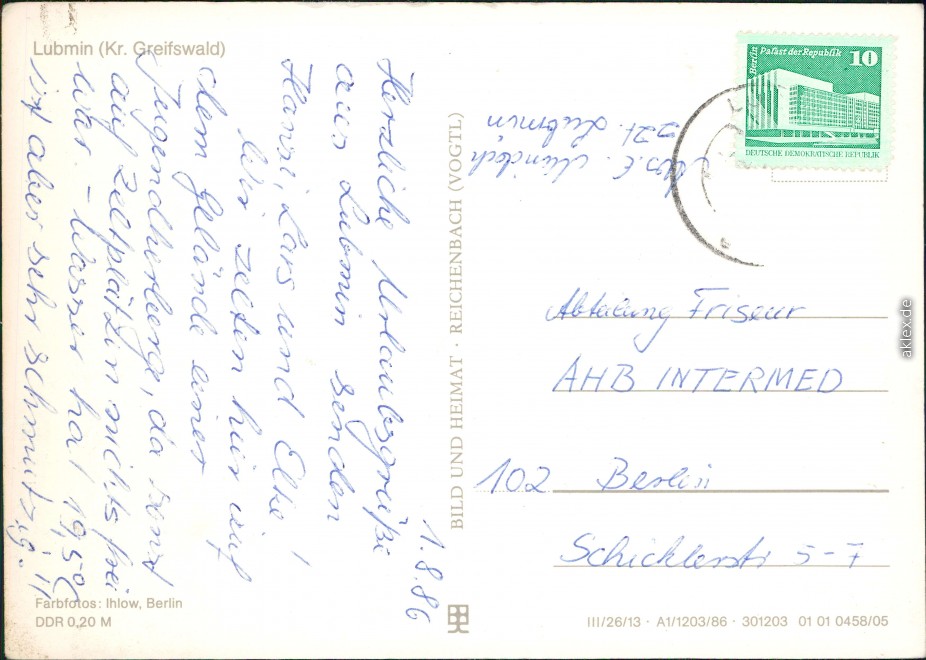 Lubmin (Kr. Greifswald)
1.8.86
Herzliche Urlaubsgrüße
aus Lubmin senden
Hansi, Lars und Elke!
Wir zelten hier auf
dem Gelände einer
Jugendherberge, da sonst
auf Zeltplätzen nichts frei
war. - Wasser hat 19,5°C
ist aber sehr schmutzig. !!
Farbfotos: Ihlow, Berlin
DDR 0,20 M
BILD UND HEIMAT · REICHENBACH (VOGTL)
Abs. E.
zzt. Lubmin
Berlin Palast der Republik 10
DEUTSCHE DEMOKRATISCHE REPUBLIK
Abteilung Friseur
AHB INTERMED
102 Berlin
Schicklerstr 5-7
III/26/13 · A1/1203/86 · 301203 01 01 0458/05
aklex.de